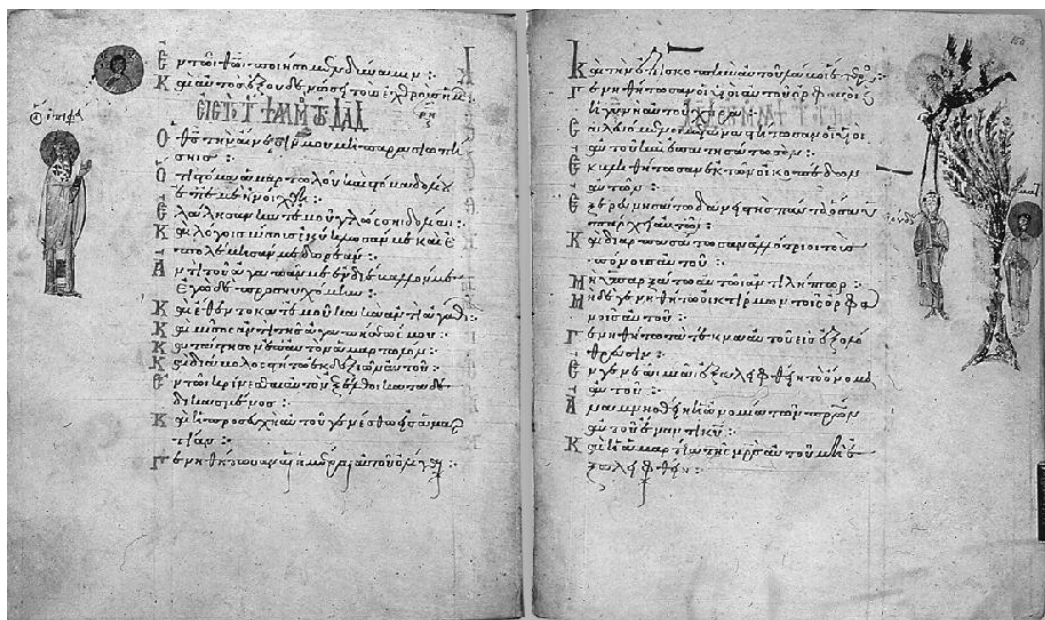 Ἐν τῶι θῶι ποιήσωμεν δύναμιν :
Καὶ αὐτὸς ἐξουδενώσει τοὺς ἐχθροὺς ἡμ
ΕΙΣ ΤΟ Τ ΨΑΛΜΟΣ ΤΩ ΔΑΔ
ρη
Ὁ θς τὴν αἴνεσίν μου μὴ παρασιωπή
σης :
Ὅτι στόμα ἁμαρτωλοῦ καὶ στόμα δολίου
ἐπ' ἐμὲ ἠνοίχθη :
Ἐλάλησαν κατ' ἐμοῦ γλώσση δολίαι :
Καὶ λόγοις μίσους ἐκύκλωσάν με καὶ ἐ
πολέμησάν με δωρεάν :
Ἀντὶ τοῦ ἀγαπᾶν με ἐνδιέβαλλόν με
Ἐγὼ δὲ προσηυχόμην :
Καὶ ἔθεντο κατ' ἐμοῦ κακὰ ἀντὶ ἀγαθῶ
Καὶ μῖσος ἀντὶ τῆς ἀγαπήσεώς μου :
Κατάστησον ἐπ' αὐτὸν ἁμαρτωλόν :
Καὶ διάβολος στήτω ἐκ δεξιῶν αὐτοῦ :
Ἐν τῶι κρίνεσθαι αὐτὸν ἐξέλθοι καταδε
δικασμένος :
Καὶ ἡ προσευχὴ αὐτοῦ γενέσθω εἰς ἁμαρ
τίαν :
Γενηθήτωσαν αἱ ἡμέραι αὐτοῦ ὀλίγαι :
Καὶ τὴν ἐπισκοπὴν αὐτοῦ λάβοι ἕτερος :
Γενηθήτωσαν οἱ υἱοὶ αὐτοῦ ὀρφανοί
ἡ γυνὴ αὐτοῦ χήρα :
Σαλευόμενοι μεταναστήτωσαν οἱ υἱοὶ
αὐτοῦ καὶ ἐπαιτησάτωσαν :
Ἐκβληθήτωσαν ἐκ τῶν οἰκοπέδων
αὐτῶν :
Ἐξερευνησάτω δανειστὴς πάντα ὅσα
ὑπάρχει αὐτῶι :
Καὶ διαρπασάτωσαν ἀλλότριοι τοὺς
πόνους αὐτοῦ :
Μὴ ὑπαρξάτω αὐτῶι ἀντιλήπτωρ :
Μηδὲ γενηθήτω οἰκτίρμων τοῖς ὀρφα
νοῖς αὐτοῦ :
Γενηθήτω τὰ τέκνα αὐτοῦ εἰς ἐξολό
θρευσιν :
Ἐν γενεᾶι μιᾶι ἐξαλειφθείη τὸ ὄνομα
αὐτοῦ :
Ἀναμνησθείη ἡ ἀνομία τῶν πρων
αὐτοῦ ἔναντι κυ :
Καὶ ἡ ἁμαρτία τῆς μρς αὐτοῦ μὴ ἐ
ξαλειφθείη :